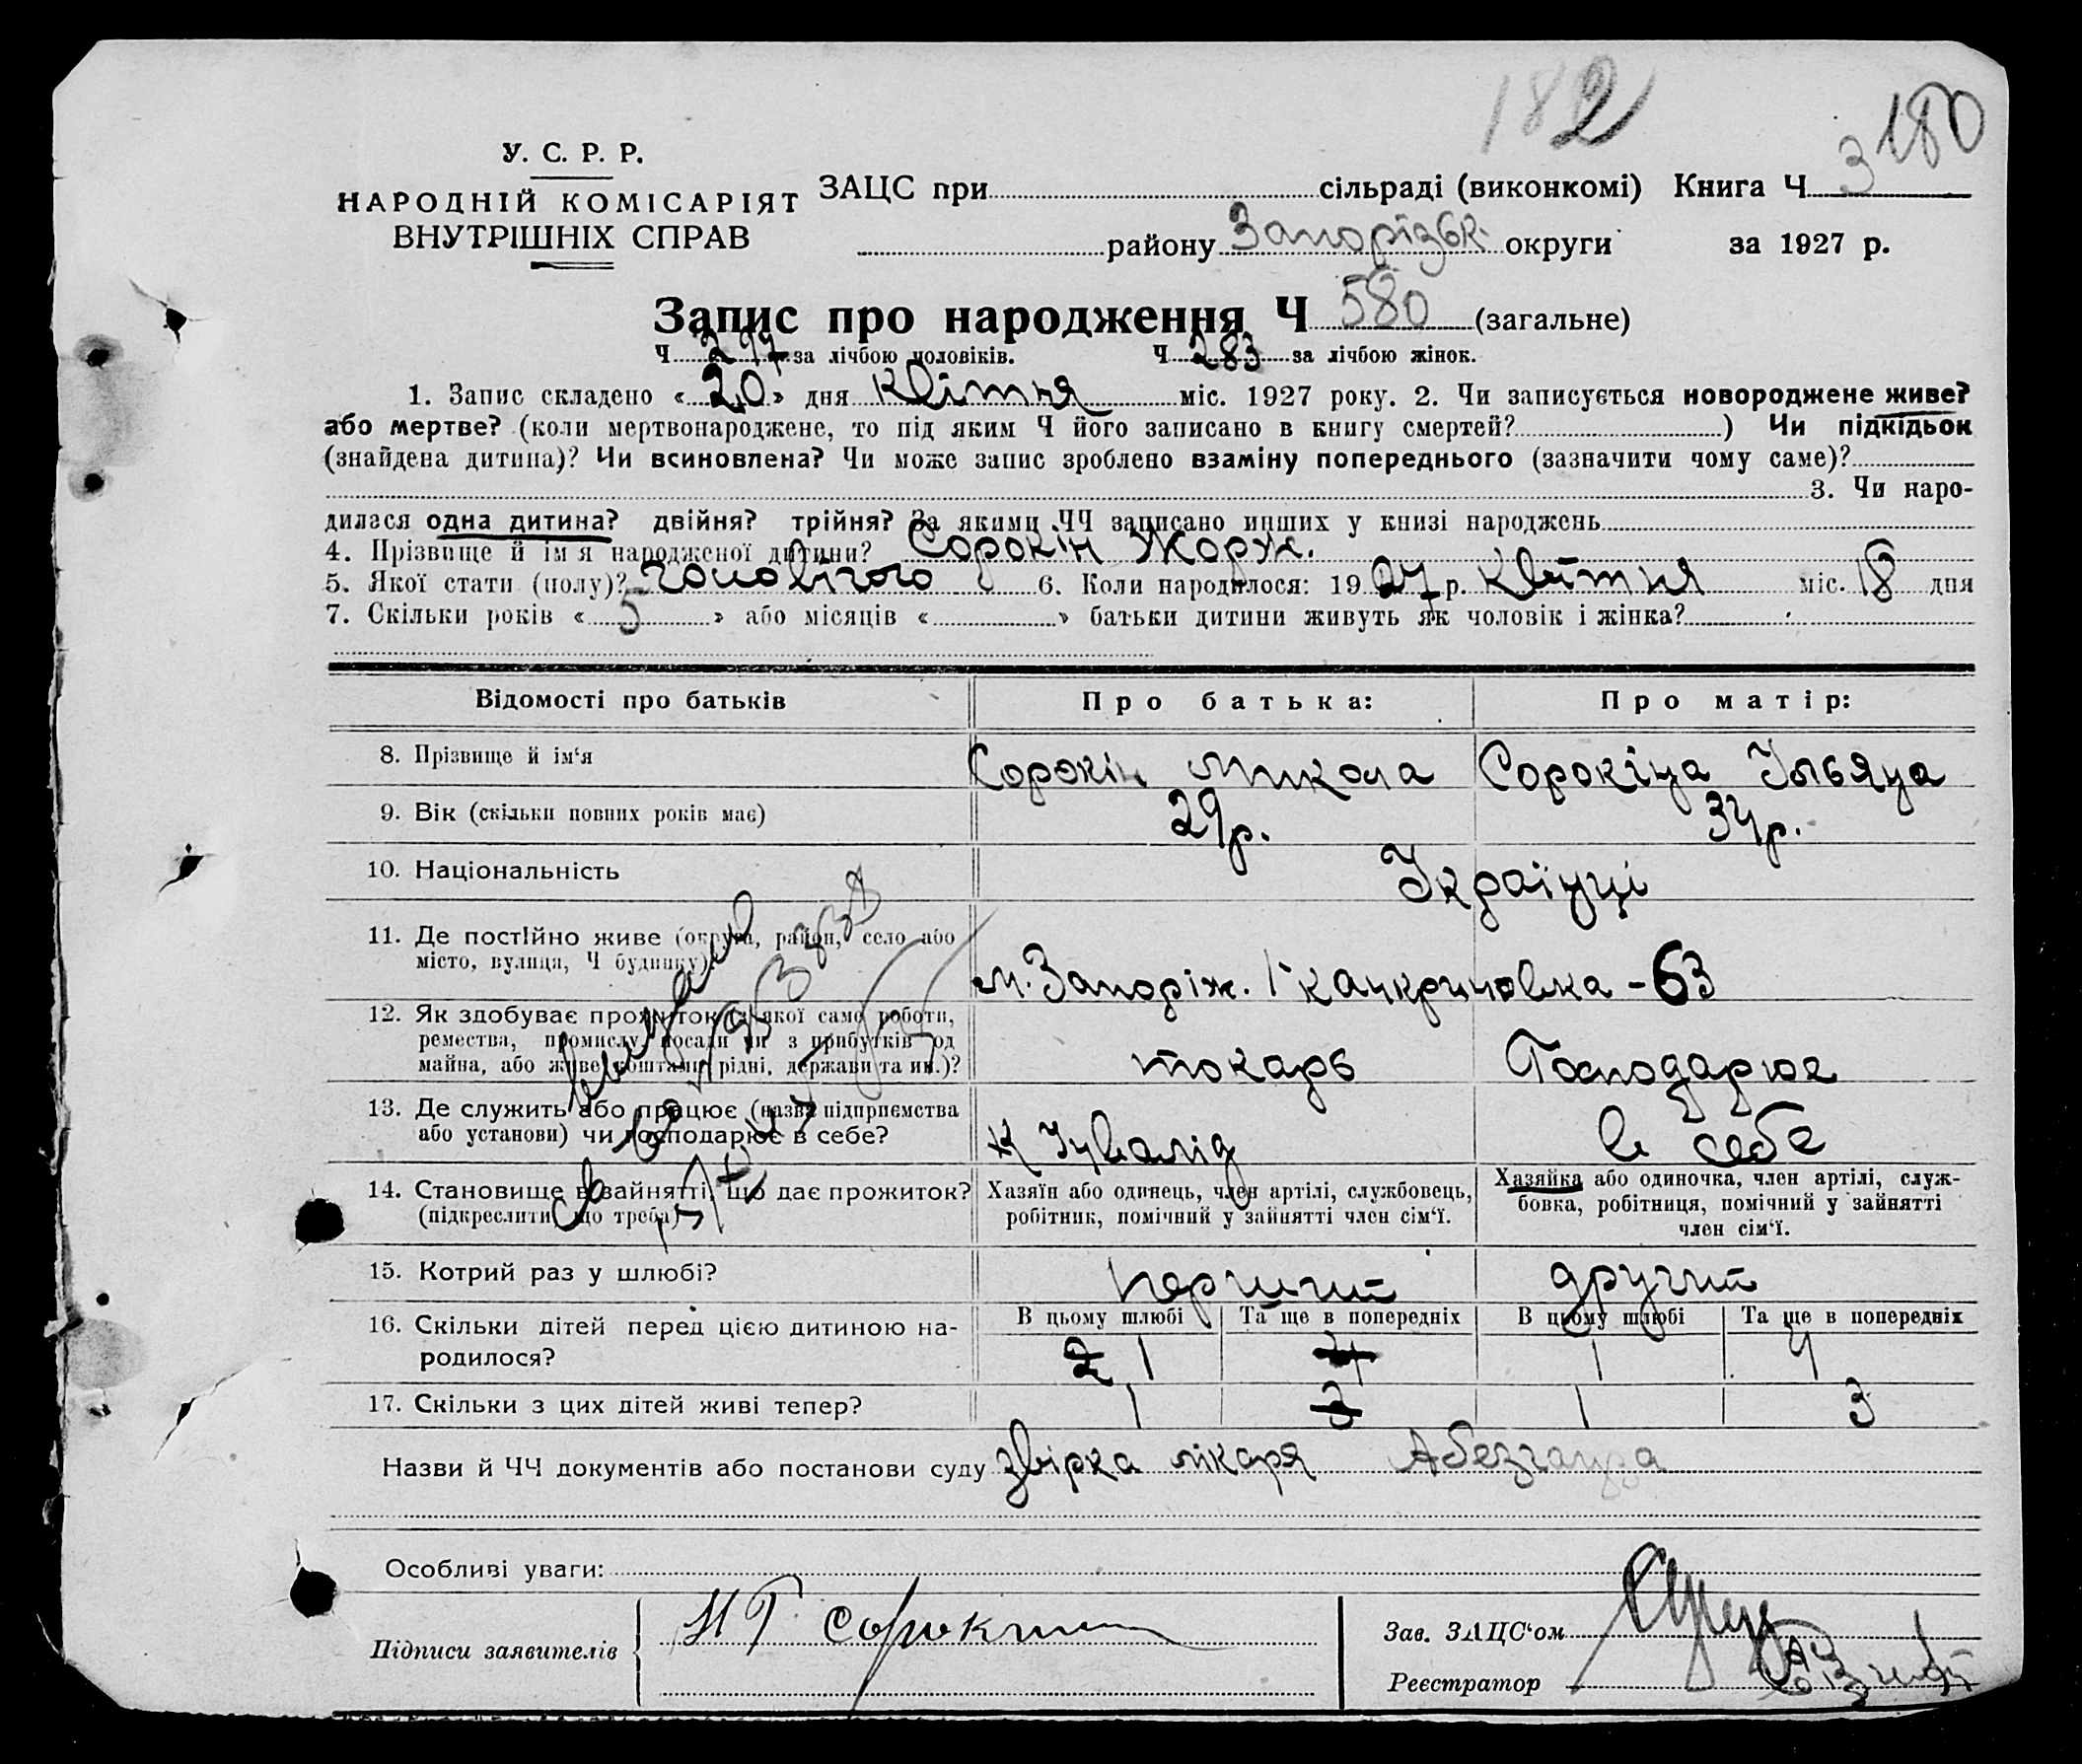 182
180
У. С. Р. Р.
НАРОДНІЙ КОМІСАРІЯТ
ВНУТРІШНІХ СПРАВ
ЗАЦС при сільраді (виконкомі) Книга Ч 3
району Запорізьк. округи за 1927 р.
Запис про народження Ч 580 (загальне)
Ч 297 за лічбою чоловіків. Ч 283 за лічбою жінок.
1. Запис складено « 20 » дня квітня міс. 1927 року. 2. Чи записується новороджене живе?
або мертве? (коли мертвонароджене, то під яким Ч його записано в книгу смертей? ) Чи підкідьок
(знайдена дитина)? Чи всиновлена? Чи може запис зроблено взаміну попереднього (зазначити чому саме)?
3. Чи наро-
дилася одна дитина? двійня? трійня? За якими ЧЧ записано инших у книзі народжень
4. Прізвище й ім'я народженої дитини? Сорокін Жорж.
5. Якої стати (полу)? чоловічого 6. Коли народилося: 1927 р. квітня міс. 18 дня
7. Скільки років « 5 » або місяців « » батьки дитини живуть як чоловік і жінка?
Відомості про батьків Про батька: Про матір:
8. Прізвище й ім'я Сорокін Микола Сорокіна Ульяна
9. Вік (скільки повних років має) 29 р. 34 р.
10. Національність Українці
11. Де постійно живе (округа, район, село або
місто, вулиця, Ч будинку) м. Запоріж. Канкриновка - 63
12. Як здобуває прожиток (з якої само роботи,
ремества, промислу, посади чи з прибутків од
майна, або живе коштами рідні, держави та ин.)? токарь Господарює
13. Де служить або працює (назва підприємства
або установи) чи господарює в себе? К Інвалід в себе
14. Становище в зайнятті, що дає прожиток?
(підкреслити що треба)
Хазяїн або одинець, член артілі, службовець,
робітник, помічний у зайнятті член сім'ї.
Хазяйка або одиночка, член артілі, служ-
бовка, робітниця, помічний у зайнятті
член сім'ї.
15. Котрий раз у шлюбі? перший другий
В цьому шлюбі Та ще в попередніх В цьому шлюбі Та ще в попередніх
16. Скільки дітей перед цією дитиною на-
родилося? 2 1 4 1 4
17. Скільки з цих дітей живі тепер? 1 3 1 3
Назви й ЧЧ документів або постанови суду звірка лікаря
Особливі уваги:
Підписи заявителів НГ Сорокин
Зав. ЗАЦС'ом
Реєстратор